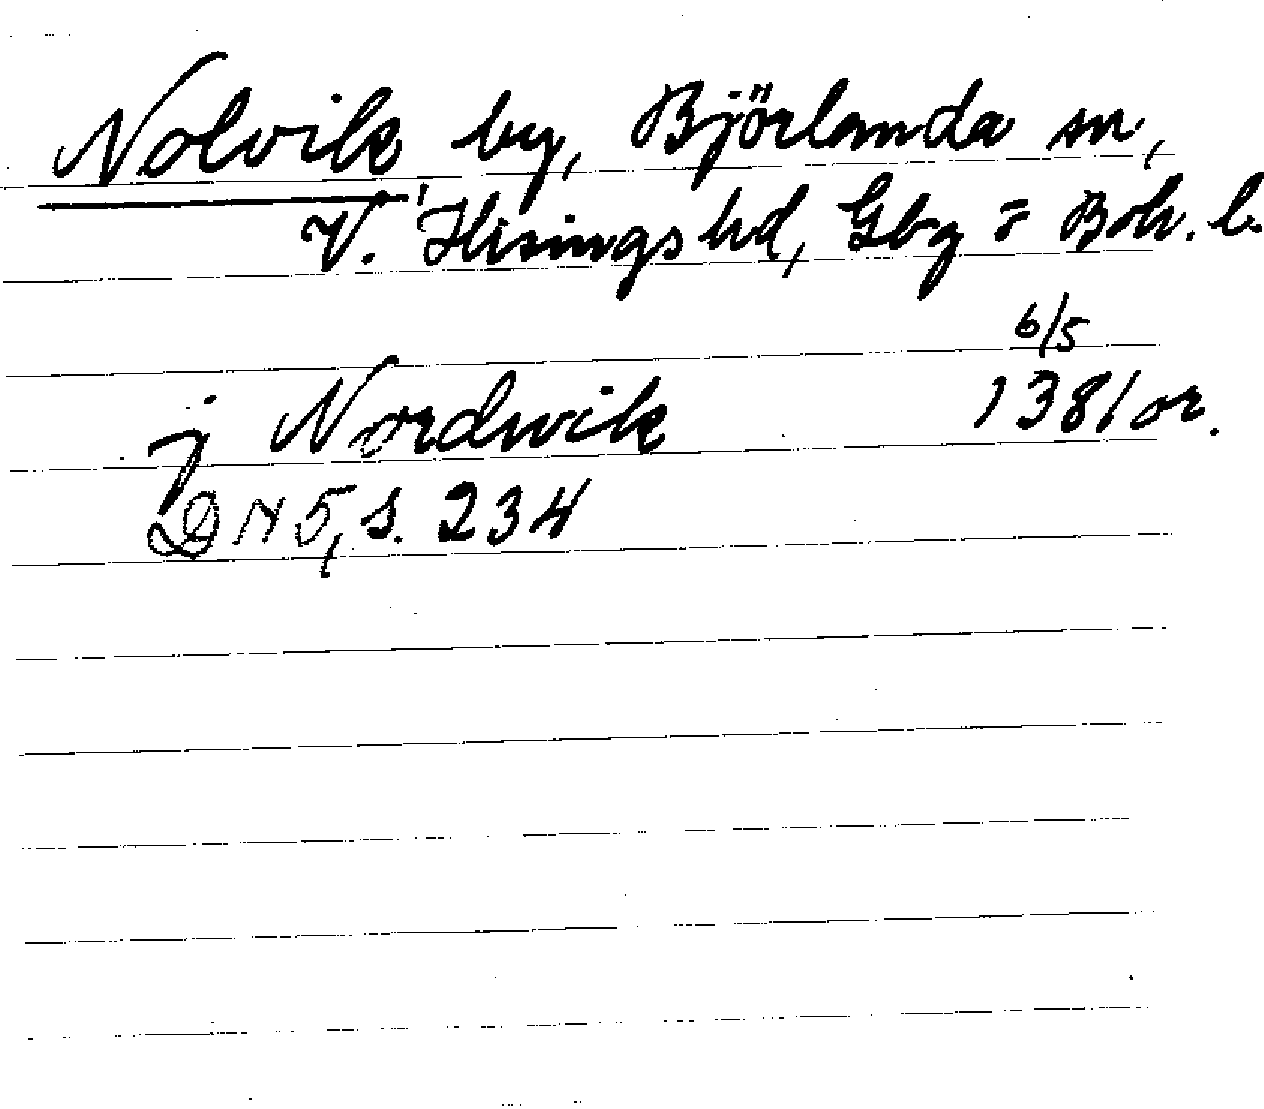 Nolvik by, Björlanda sn,
V. Hisings hd, Gbg o Boh. l.
6/5
j Nordwik 1381 or.
DN 5, s. 234